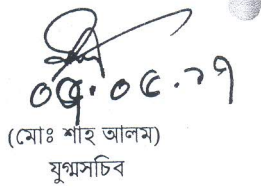 ০৫.০৫.২৭
(মোঃ শাহ আলম)
যুগ্মসচিব